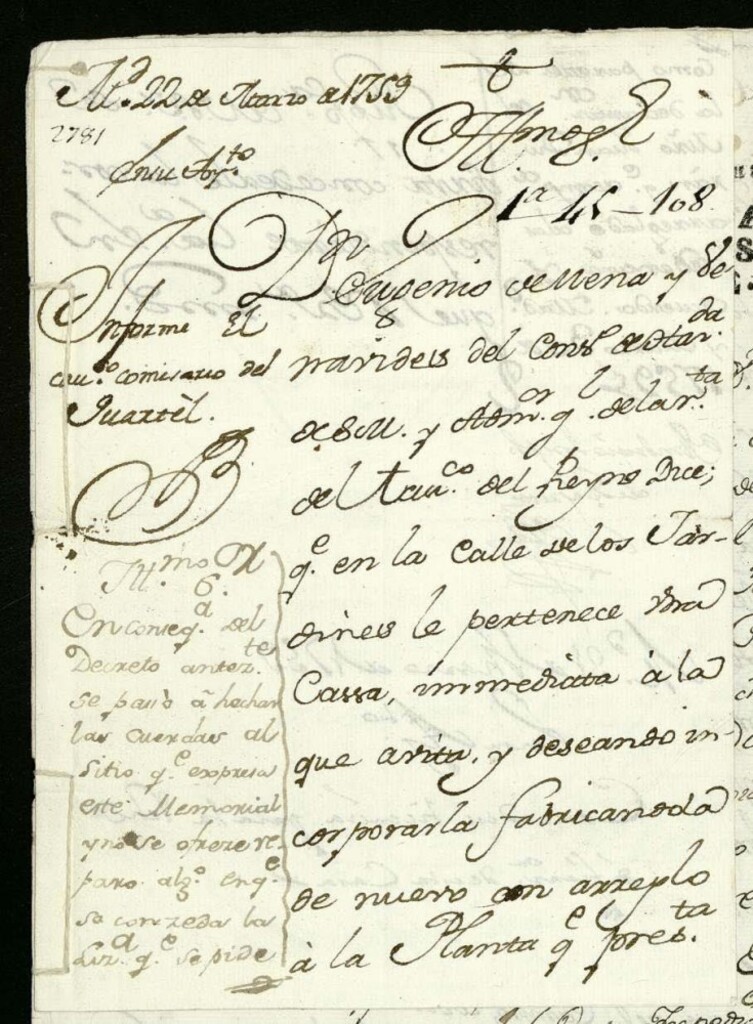 M.d 22 de Marzo de 1759
2781
En su Ay.to
Illmo. S.r
1a 45-108
Informe El
cav.o comisario del
Quartèl.
D.n Eugenio de Mena y Be
navides del Cons.o de Haz.da
de S.M. y Adm.or g.l de la r.ta
del Tavaco del Reyno Dice;
q.e en la Calle de los Jar-
dines le pertenece vna
Cassa, immediata à la
que avita, y deseando in-
corporarla fabricandola
de nuevo con arreglo
à la Planta q.e pres.ta
Ill.mo S.r
En conseq.a del
Decreto antez.te
se passò à hechar
las cuerdas al
sitio q.e expresa
este Memorial
y no se ofreze re-
paro alg.o en q.e
se conzeda la
Liz.a q.e se pide